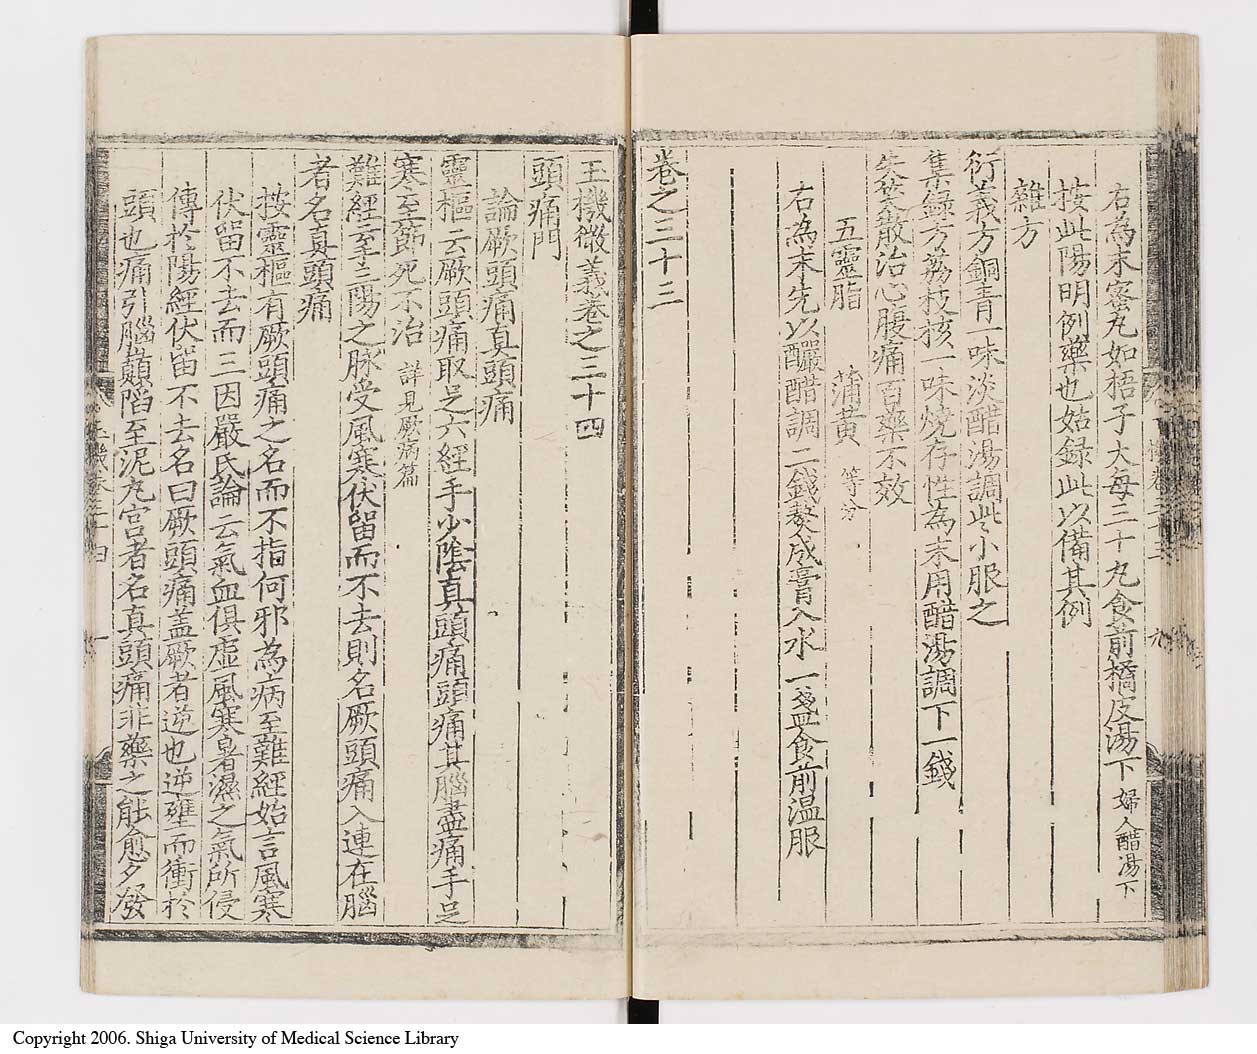 右為末蜜丸如梧子大毎三十丸食前橘皮湯下婦人醋湯下
按此陽明例藥也姑録此以備其例
雜方
衍義方銅青一味淡醋湯調些小服之
集録方茘枝核一味燒存性為末用醋湯調下一錢
失笑散治心腹痛百藥不效
五靈脂 蒲黄 等分
右為末先以釅醋調二錢熬成膏入水一盞食前温服
卷之三十三
玉機微義卷之三十四
頭痛門
論厥頭痛真頭痛
靈樞云厥頭痛取足六經手少陰真頭痛頭痛甚腦盡痛手足
寒至節死不治 詳見厥病篇
難經云三陽之脉受風寒伏留而不去則名厥頭痛入連在腦
者名真頭痛
按靈樞有厥頭痛之名而不指何邪為病至難經始言風寒
伏留不去而三因嚴氏論云氣血俱虛風寒暑濕之氣所侵
傳於陽經伏留不去名曰厥頭痛盖厥者逆也逆壅而衝於
頭也痛引腦巔陷至泥丸宫者名真頭痛非藥之能愈夕發
玉機卷三十四 一
Copyright 2006. Shiga University of Medical Science Library